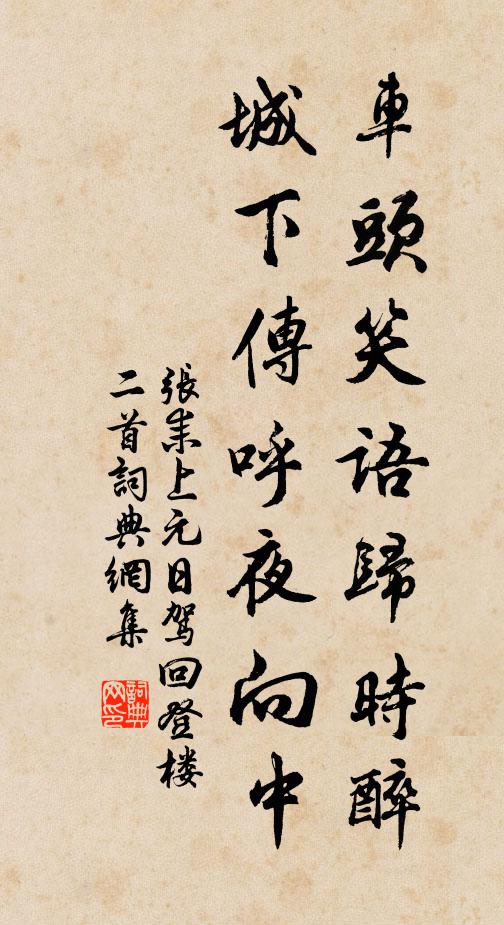 車頭笑語歸時醉
城下傳呼夜向中
張耒上元日駕回登楼
二首詞典網集
詞典
网印